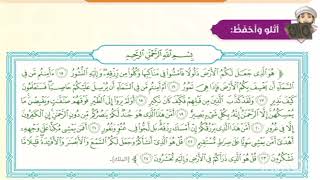 أَتْلُو وَأَحْفَظُ:
بِسْمِ اللَّهِ الرَّحْمَٰنِ الرَّحِيمِ
هُوَ ٱلَّذِى جَعَلَ لَكُمُ ٱلْأَرْضَ ذَلُولًا فَٱمْشُوا۟ فِى مَنَاكِبِهَا وَكُلُوا۟ مِن رِّزْقِهِۦ وَإِلَيْهِ ٱلنُّشُورُ ﴿١٥﴾ ءَأَمِنتُم مَّن فِى
ٱلسَّمَآءِ أَن يَخْسِفَ بِكُمُ ٱلْأَرْضَ فَإِذَا هِىَ تَمُورُ ﴿١٦﴾ أَمْ أَمِنتُم مَّن فِى ٱلسَّمَآءِ أَن يُرْسِلَ عَلَيْكُمْ حَاصِبًا فَسَتَعْلَمُونَ
كَيْفَ نَذِيرِ ﴿١٧﴾ وَلَقَدْ كَذَّبَ ٱلَّذِينَ مِن قَبْلِهِمْ فَكَيْفَ كَانَ نَكِيرِ ﴿١٨﴾ أَوَلَمْ يَرَوْا۟ إِلَى ٱلطَّيْرِ فَوْقَهُمْ صَٰٓفَّٰتٍ وَيَقْبِضْنَ مَا
يُمْسِكُهُنَّ إِلَّا ٱلرَّحْمَٰنُ إِنَّهُۥ بِكُلِّ شَىْءٍۭ بَصِيرٌ ﴿١٩﴾ أَمَّنْ هَٰذَا ٱلَّذِى هُوَ جُندٌ لَّكُمْ يَنصُرُكُم مِّن دُونِ ٱلرَّحْمَٰنِ إِنِ ٱلْكَٰفِرُونَ
إِلَّا فِى غُرُورٍ ﴿٢٠﴾ أَمَّنْ هَٰذَا ٱلَّذِى يَرْزُقُكُمْ إِنْ أَمْسَكَ رِزْقَهُۥ بَل لَّجُّوا۟ فِى عُتُوٍّ وَنُفُورٍ ﴿٢١﴾ أَفَمَن يَمْشِى مُكِبًّا عَلَىٰ وَجْهِهِۦٓ
أَهْدَىٰٓ أَمَّن يَمْشِى سَوِيًّا عَلَىٰ صِرَٰطٍ مُّسْتَقِيمٍ ﴿٢٢﴾ قُلْ هُوَ ٱلَّذِىٓ أَنشَأَكُمْ وَجَعَلَ لَكُمُ ٱلسَّمْعَ وَٱلْأَبْصَٰرَ وَٱلْأَفْـِٔدَةَ قَلِيلًا مَّا
تَشْكُرُونَ ﴿٢٣﴾ قُلْ هُوَ ٱلَّذِى ذَرَأَكُمْ فِى ٱلْأَرْضِ وَإِلَيْهِ تُحْشَرُونَ ﴿٢٤﴾ [الملك]